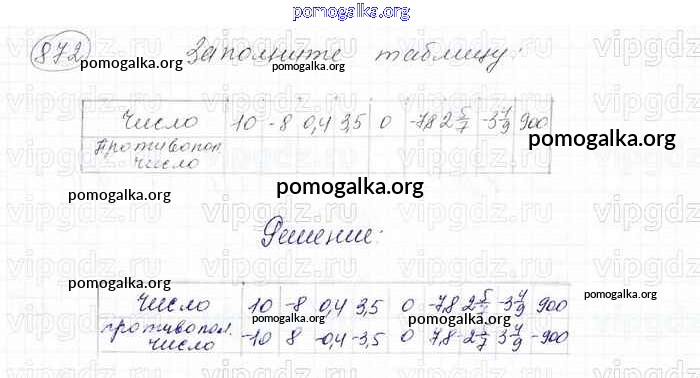 pomogalka.org
872 Заполните таблицу:
pomogalka.org pomogalka.org
Число 10 -8 0,4 3,5 0 -7,8 2 5/7 -3 4/9 900
Противопол. число
pomogalka.org
pomogalka.org
pomogalka.org
vipgdz.ru
Решение:
pomogalka.org
Число 10 -8 0,4 3,5 0 -7,8 2 5/7 -3 4/9 900
pomogalka.org
противопол. число -10 8 -0,4 -3,5 0 7,8 -2 5/7 3 4/9 -900
pomogalka.org pomogalka.org
pomogalka.org